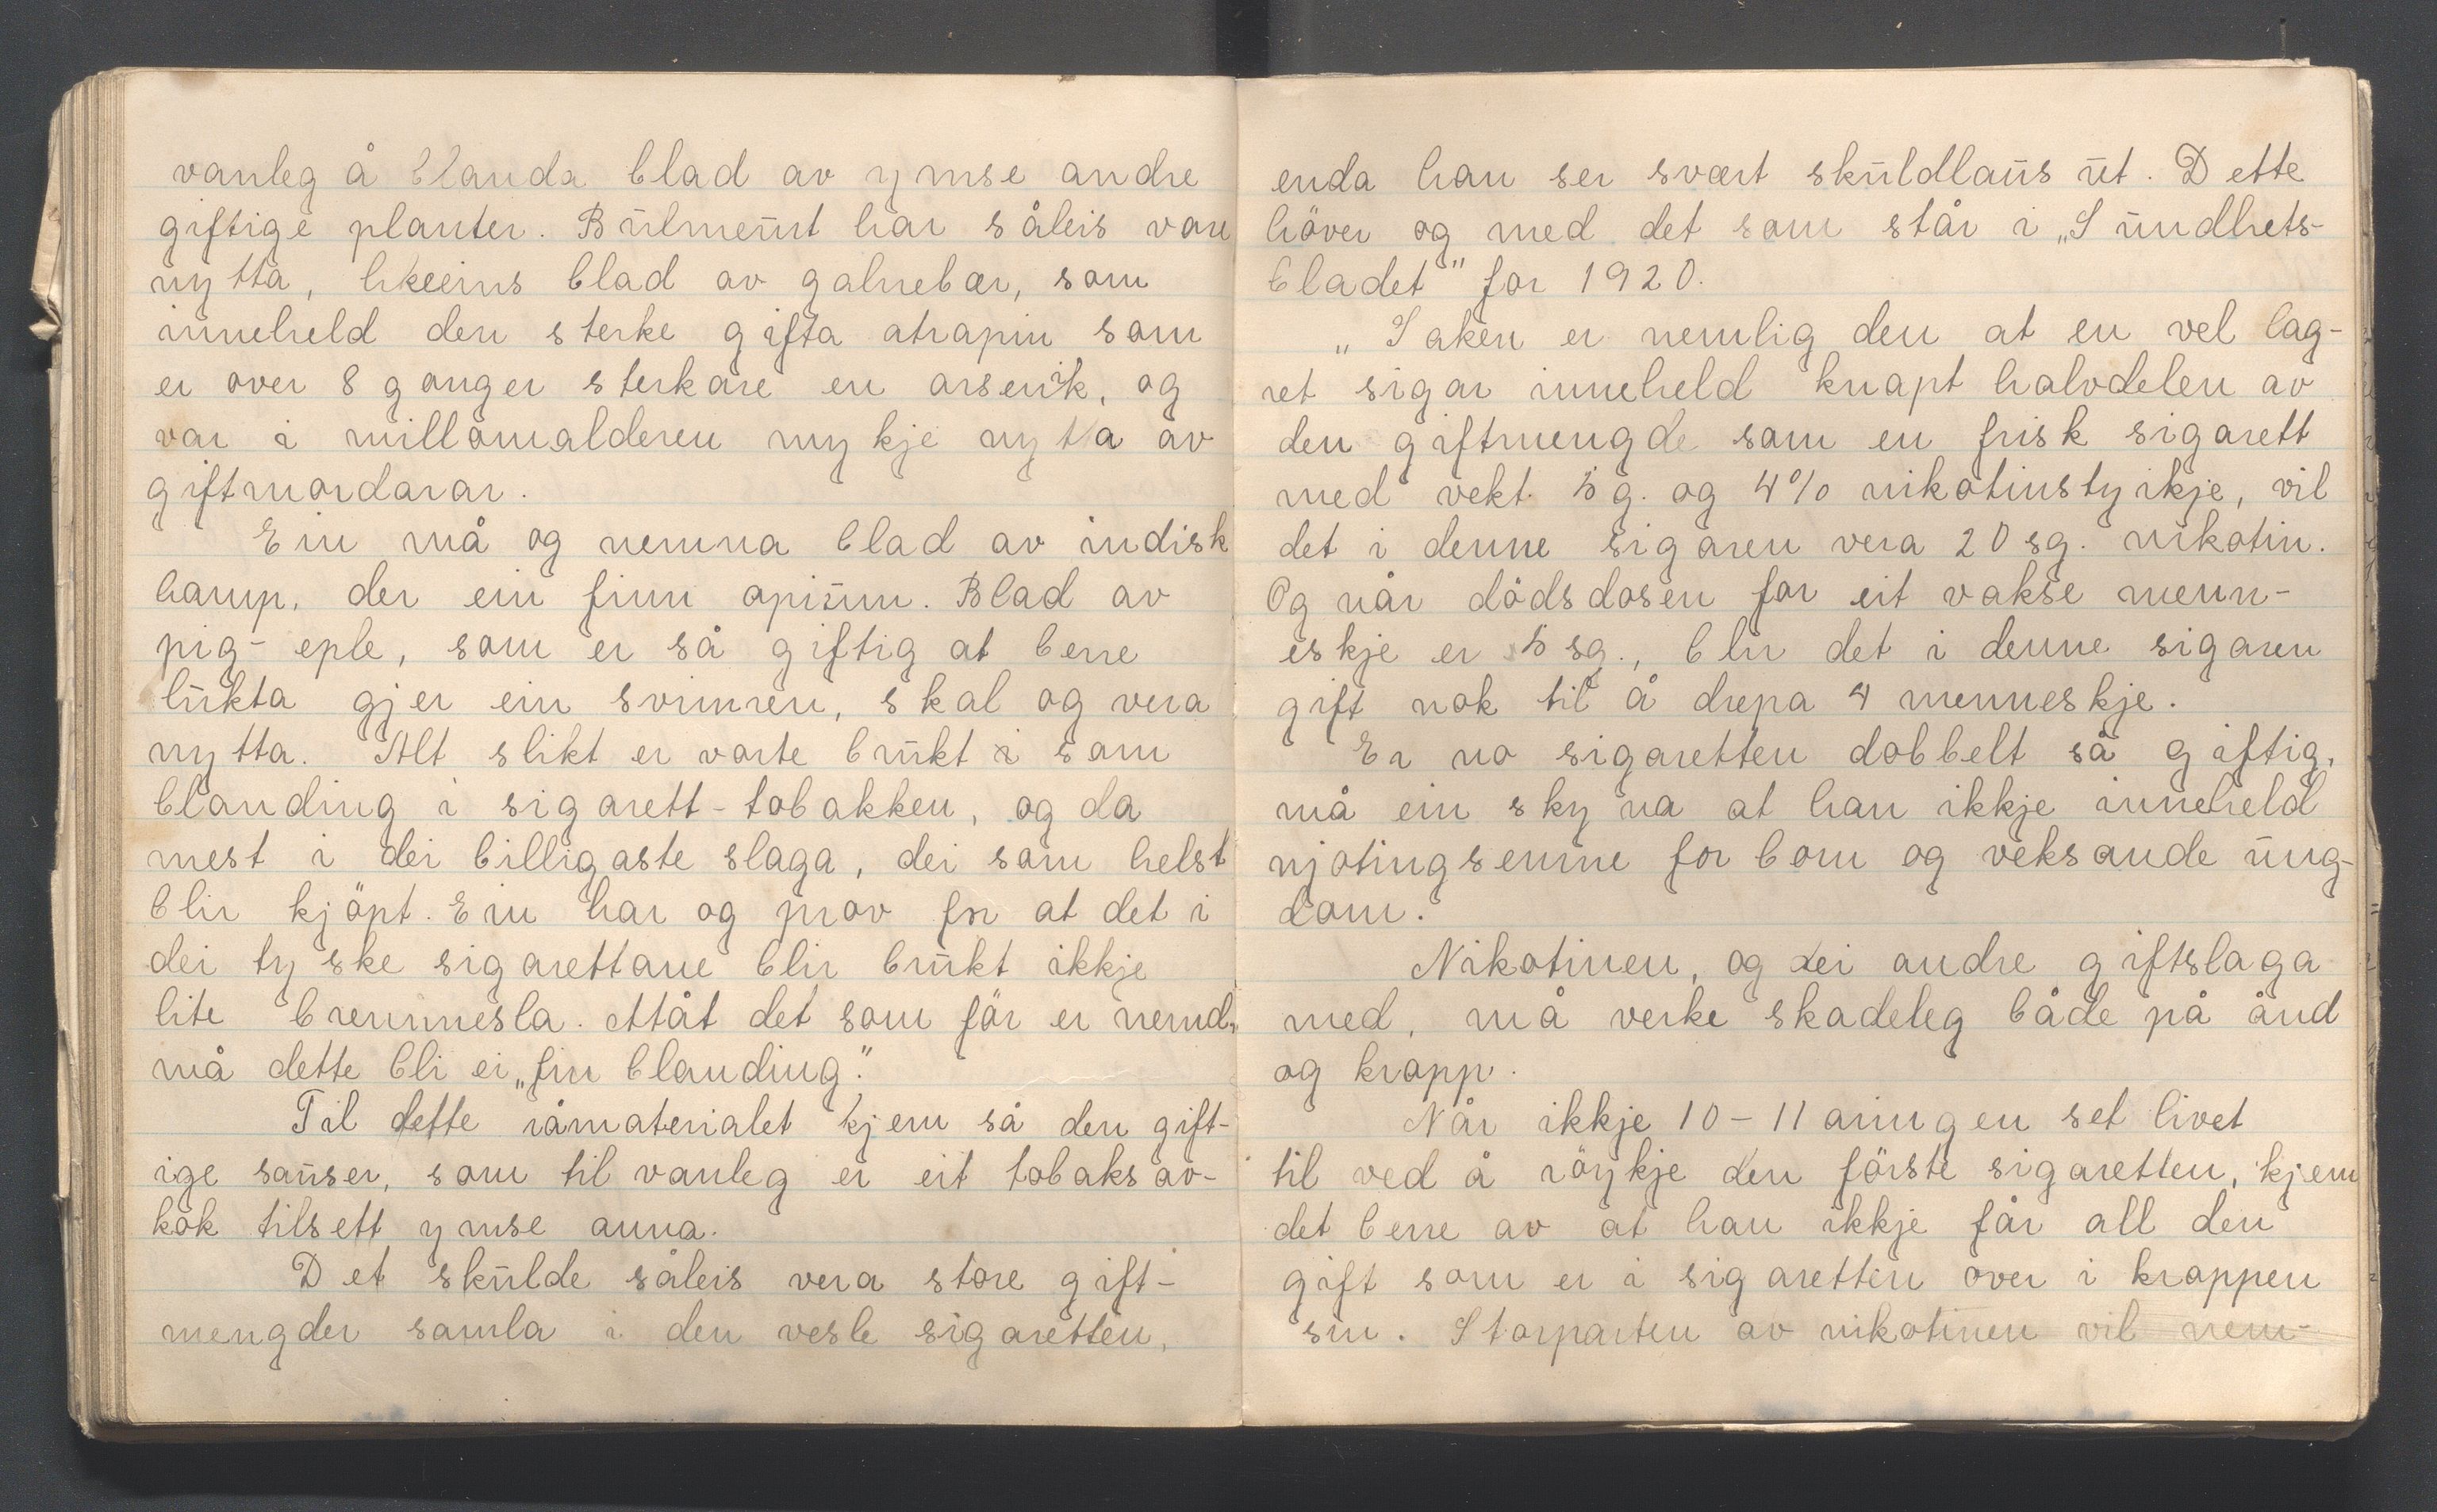 vanleg å blanda blad av ymse andre
giftige planter. Bulmeurt har såleis vore
nytta, likeeins blad av galnebær, som
inneheld den sterke gifta atropin som
er over 8 gonger sterkare en arsenik, og
var i millomalderen mykje nytta av
giftmordarar.
Ein må og nemna blad av indisk
hamp, der ein finn opium. Blad av
pig-eple, som er så giftig at berre
lukta gjer ein svimren, skal og vera
nytta. Alt slikt er vorte brukt i som
blanding i sigarett-tobakken, og da
mest i dei billigaste slaga, dei som helst
blir kjöpt. Ein har og prov for at det i
dei tyske sigarettane blir brukt ikkje
lite brennnesla. Attåt det som för er nemd,
må dette bli ei „fin blanding".
Til dette råmaterialet kjem så den gift-
ige sauser, som til vanleg er eit tobaksav-
kok tilsett ymse anna.
Det skulde såleis vera store gift-
mengder samla i den vesle sigaretten,
enda han ser svært skuldlaus ut. Dette
höver og med det som står i „Sundhets-
bladet" for 1920.
„Saken er nemlig den at en vel lag-
ret sigar inneheld knapt halvdelen av
den giftmengde som en frisk sigarett
med vekt 5 g. og 4% nikotinstyrkje, vil
det i denne sigaren vera 20 sg. nikotin.
Og når dödsdosen for eit vakse menn-
eskje er 5 sg., blir det i denne sigaren
gift nok til å drepa 4 menneskje.
Er no sigaretten dobbelt så giftig,
må ein skyna at han ikkje inneheld
njotingsemne for born og veksande ung-
dom.
Nikotinen, og dei andre giftslaga
med, må verke skadeleg både på ånd
og kropp.
Når ikkje 10-11 åringen set livet
til ved å röykje den förste sigaretten, kjem
det berre av at han ikkje får all den
gift som er i sigaretten over i kroppen
sin. Storparten av nikotinen vil nem-